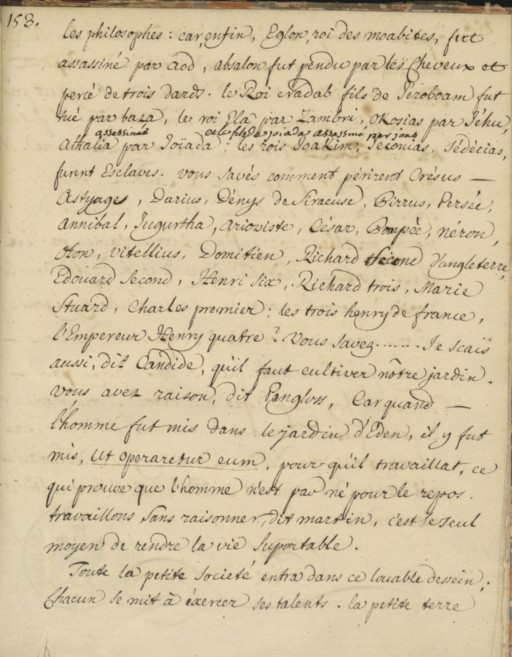 153.
les philosophes: car, enfin, Eglon, roi des moabites, fut
assassiné par aod, absalon fut pendu par les cheveux et
percé de trois dards. le Roi nadab fils de Jéroboam fut
tué par baza, le roi Ela par Zambri, okosias par Jéhu,
assassiné par Joas
Athalia par Joïada: les rois Joakim, Jeconias, Sédécias,
furent Esclaves. vous savés comment périrent Crésus —
Astyages, Darius, Dénys de Siracuse, Pirrus, Persée,
Annibal, Jugurtha, Arioviste, César, Pompée, néron,
Oton, Vitellius, Domitien, Richard Second d'angleterre,
Edouard Second, Henri Six, Richard trois, Marie
Stuard, Charles premier: les trois henry de france,
l'Empereur Henry quatre? Vous savez....... Je scais
aussi, dit Candide, qu'il faut cultiver nôtre jardin.
Vous avez raison, dit Pangloss, Car quand —
l'homme fut mis dans le jardin d'Eden, il y fut
mis, Ut operaretur eum, pour qu'il travaillat, ce
qui prouve que l'homme n'est pas né pour le repos.
travaillons Sans raisonner, dit martin, c'est le seul
moyen de rendre la vie Suportable.
Toute la petite Societé entra dans ce louable dessein;
Chacun se mit à éxercer ses talents. la petite terre